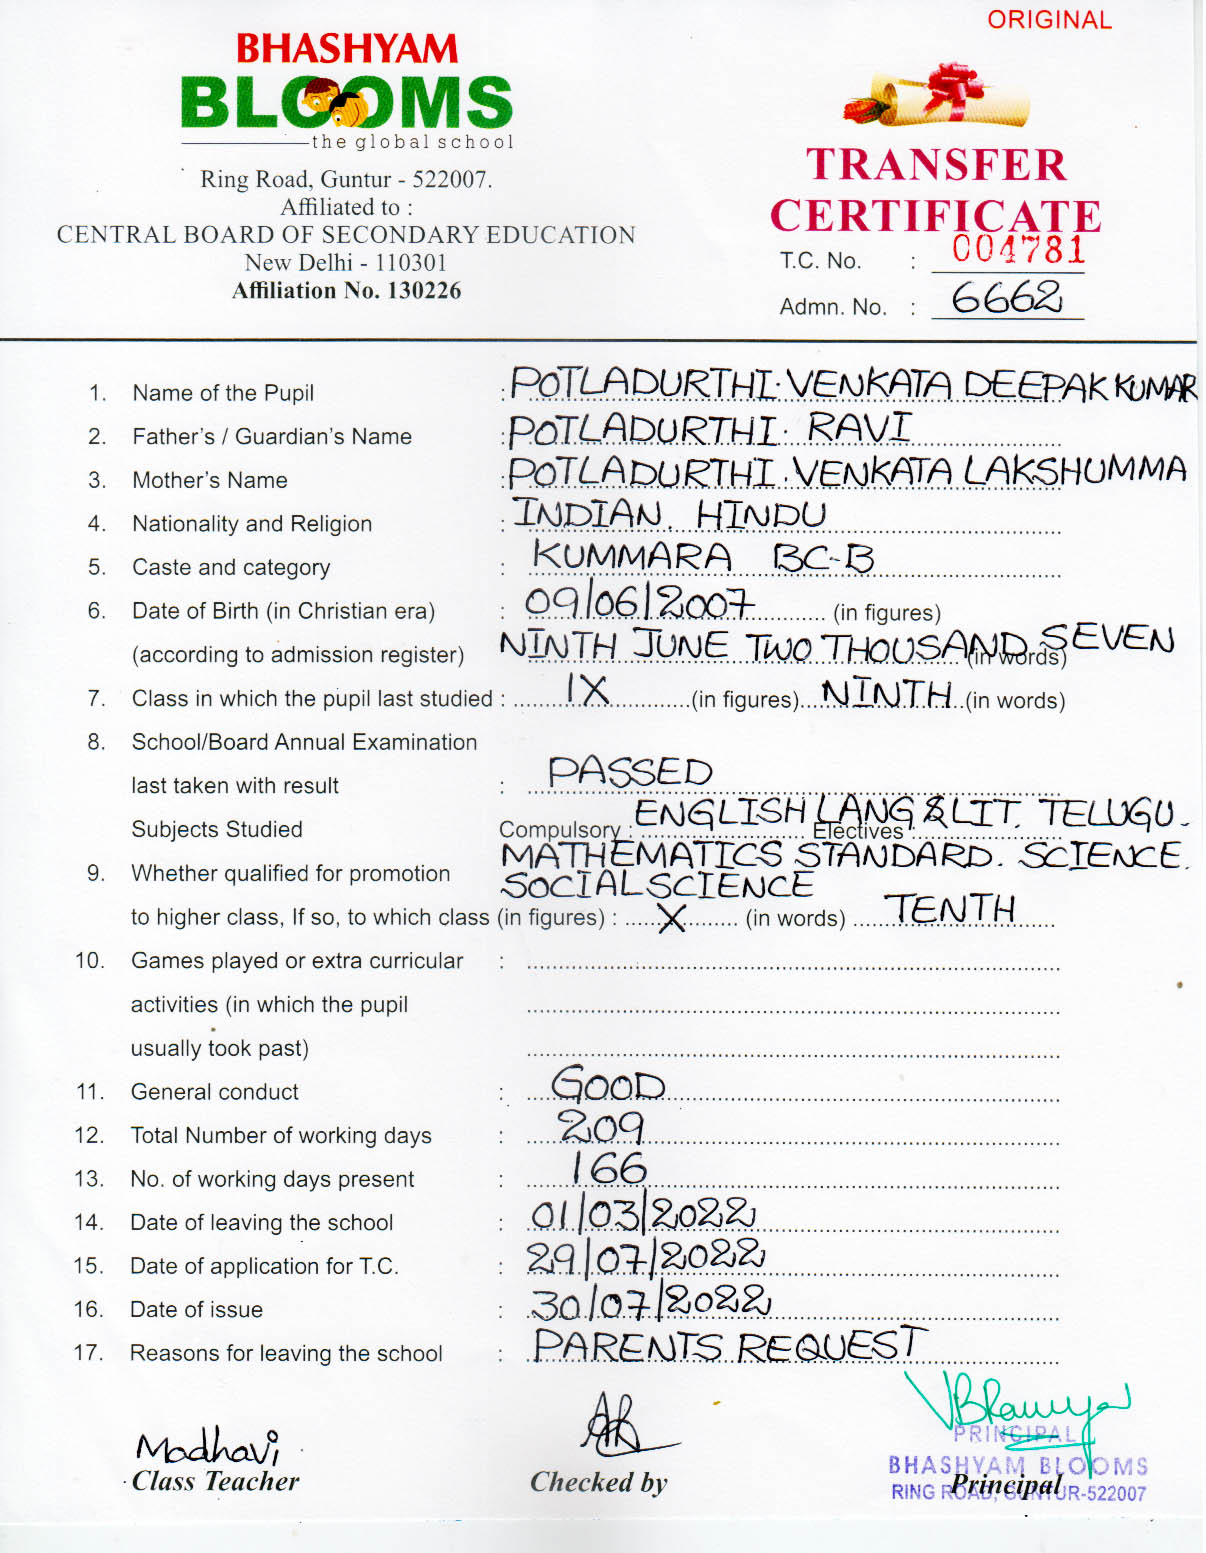 ORIGINAL
BHASHYAM
BLOOMS
the global school
Ring Road, Guntur - 522007.
Affiliated to :
CENTRAL BOARD OF SECONDARY EDUCATION
New Delhi - 110301
Affiliation No. 130226
TRANSFER
CERTIFICATE
T.C. No. : 004781
Admn. No. : 6662
1. Name of the Pupil : POTLADURTHI. VENKATA DEEPAK KUMAR
2. Father's / Guardian's Name : POTLADURTHI. RAVI
3. Mother's Name : POTLADURTHI. VENKATA LAKSHUMMA
4. Nationality and Religion : INDIAN. HINDU
5. Caste and category : KUMMARA BC-B
6. Date of Birth (in Christian era) : 09/06/2007 (in figures)
(according to admission register) NINTH JUNE TWO THOUSAND SEVEN (in words)
7. Class in which the pupil last studied : IX (in figures) NINTH (in words)
8. School/Board Annual Examination
last taken with result : PASSED
Subjects Studied Compulsory : ENGLISH LANG & LIT. TELUGU. Electives :
MATHEMATICS STANDARD. SCIENCE.
9. Whether qualified for promotion SOCIAL SCIENCE
to higher class, If so, to which class (in figures) : X (in words) TENTH
10. Games played or extra curricular :
activities (in which the pupil
usually took past)
11. General conduct : GOOD
12. Total Number of working days : 209
13. No. of working days present : 166
14. Date of leaving the school : 01/03/2022
15. Date of application for T.C. : 29/07/2022
16. Date of issue : 30/07/2022
17. Reasons for leaving the school : PARENTS REQUEST
Madhavi
PRINCIPAL
BHASHYAM BLOOMS
RING ROAD, GUNTUR-522007
Class Teacher Checked by Principal